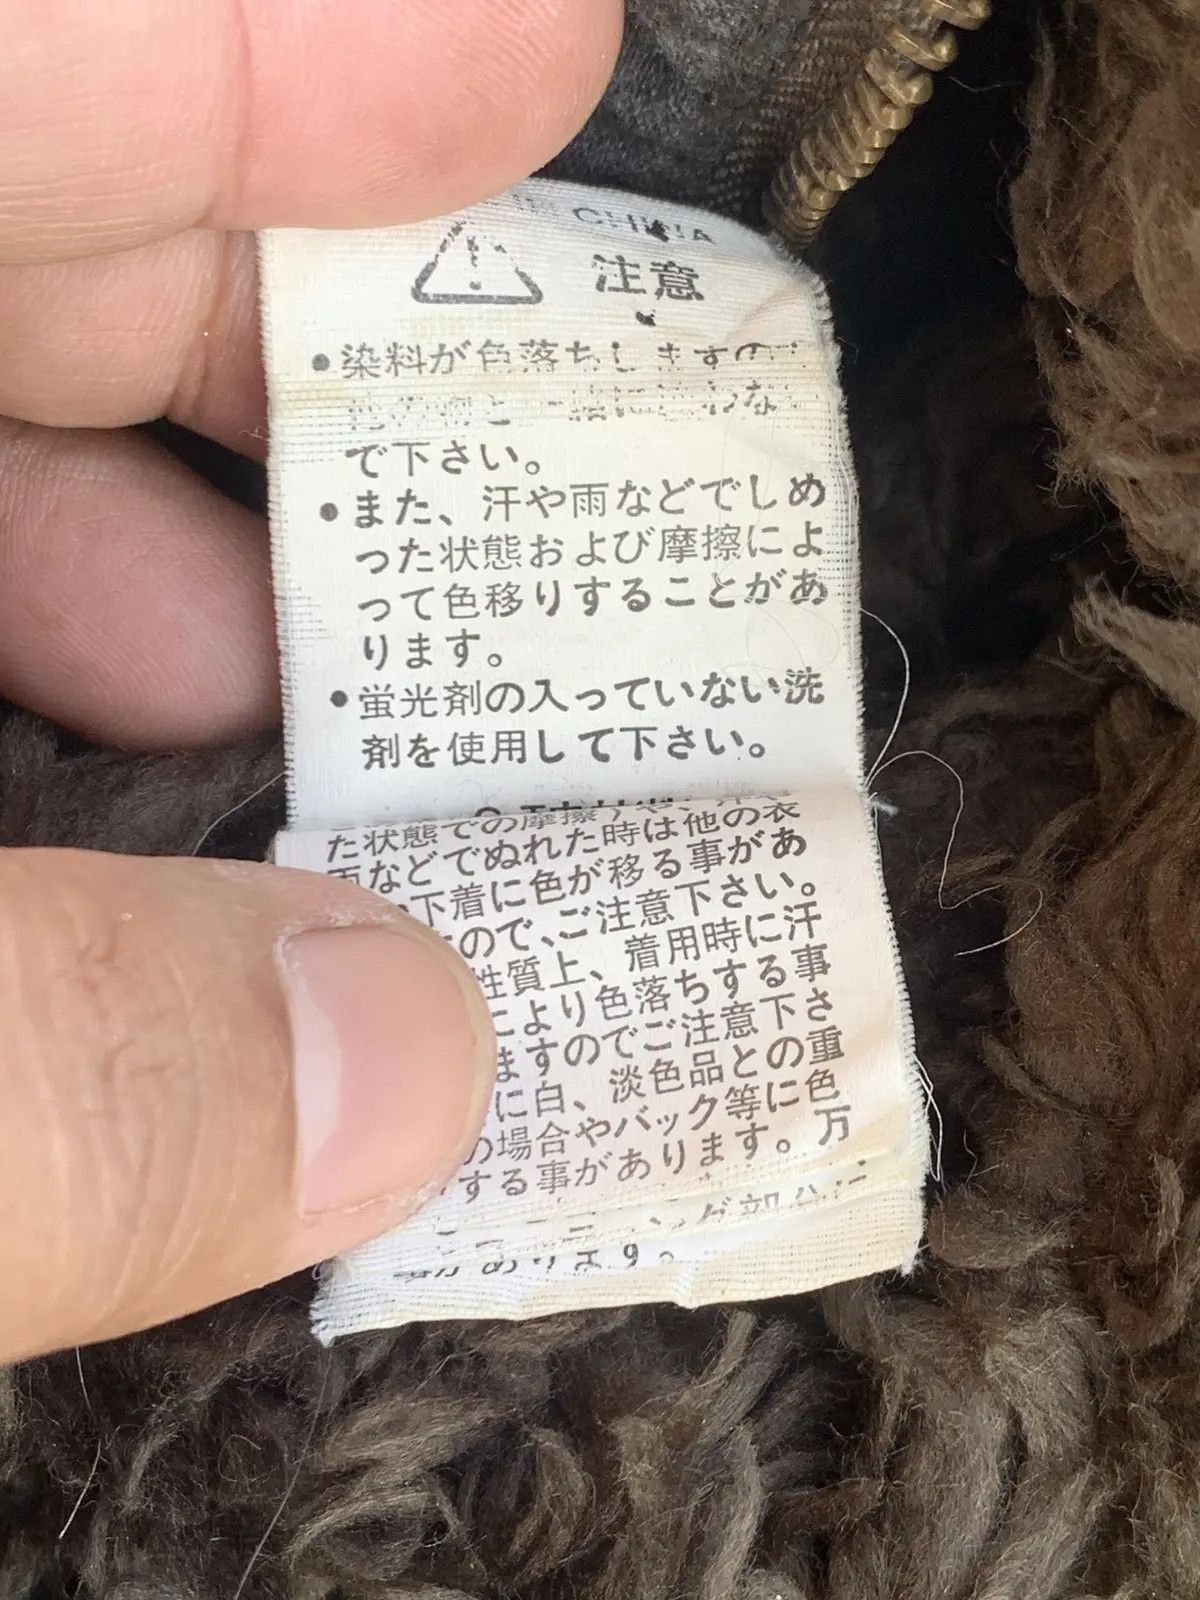 IN CHINA
注意
●染料が色落ちしますので
で下さい。
●また、汗や雨などでしめ
った状態および摩擦によ
って色移りすることがあ
ります。
●蛍光剤の入っていない洗
剤を使用して下さい。
た状態での摩擦や
雨などでぬれた時は他の衣
下着に色が移る事があ
ので、ご注意下さい。
性質上、着用時に汗
により色落ちする事
ますのでご注意下さ
に白、淡色品との重
の場合やバック等に色
する事があります。万
部分に
事があります。